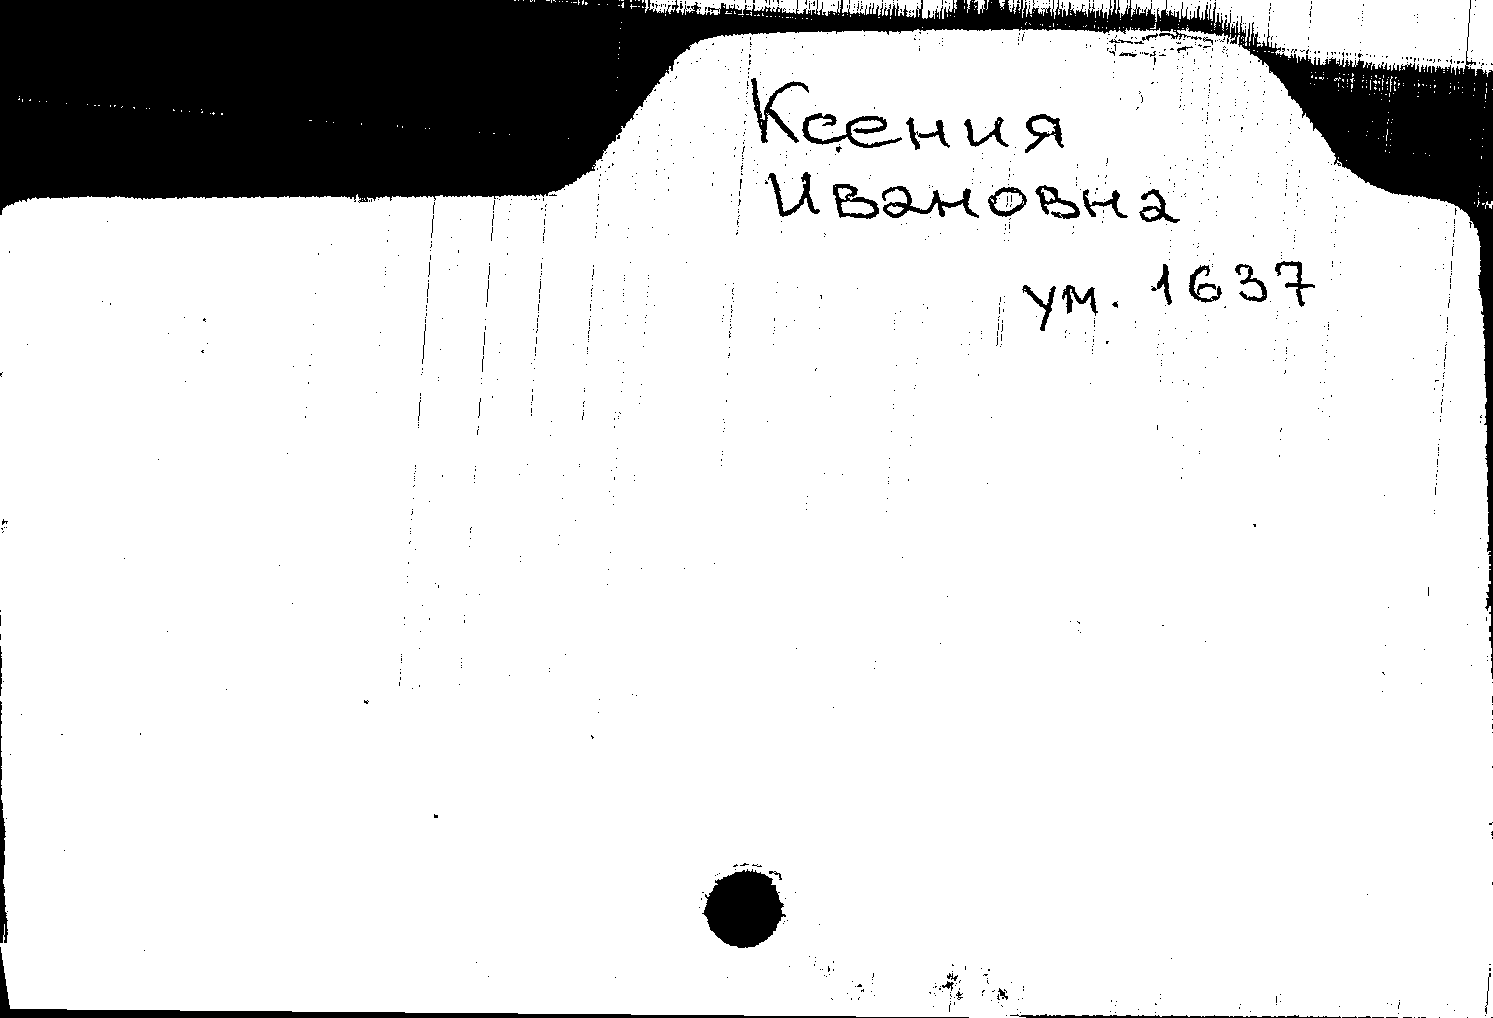 Ксения
Ивановна
ум. 1637